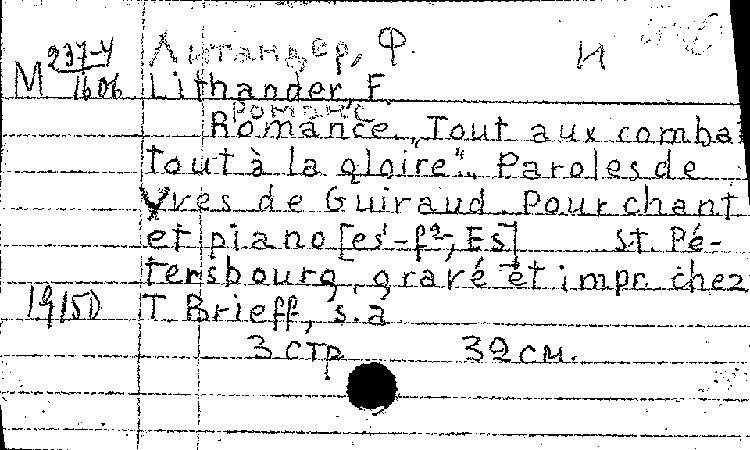 Литандер, Ф. И
М 237-4/1606 Lithander, F.
Романс
Romance „Tout aux comba
tout à la gloire“. Paroles de
Yves de Guiraud. Pour chant
et piano [es¹-f², Es] St. Pé-
tersbourg, gravé et impr. chez
1915D T. Brieff, s.a
3 стр 32 см.